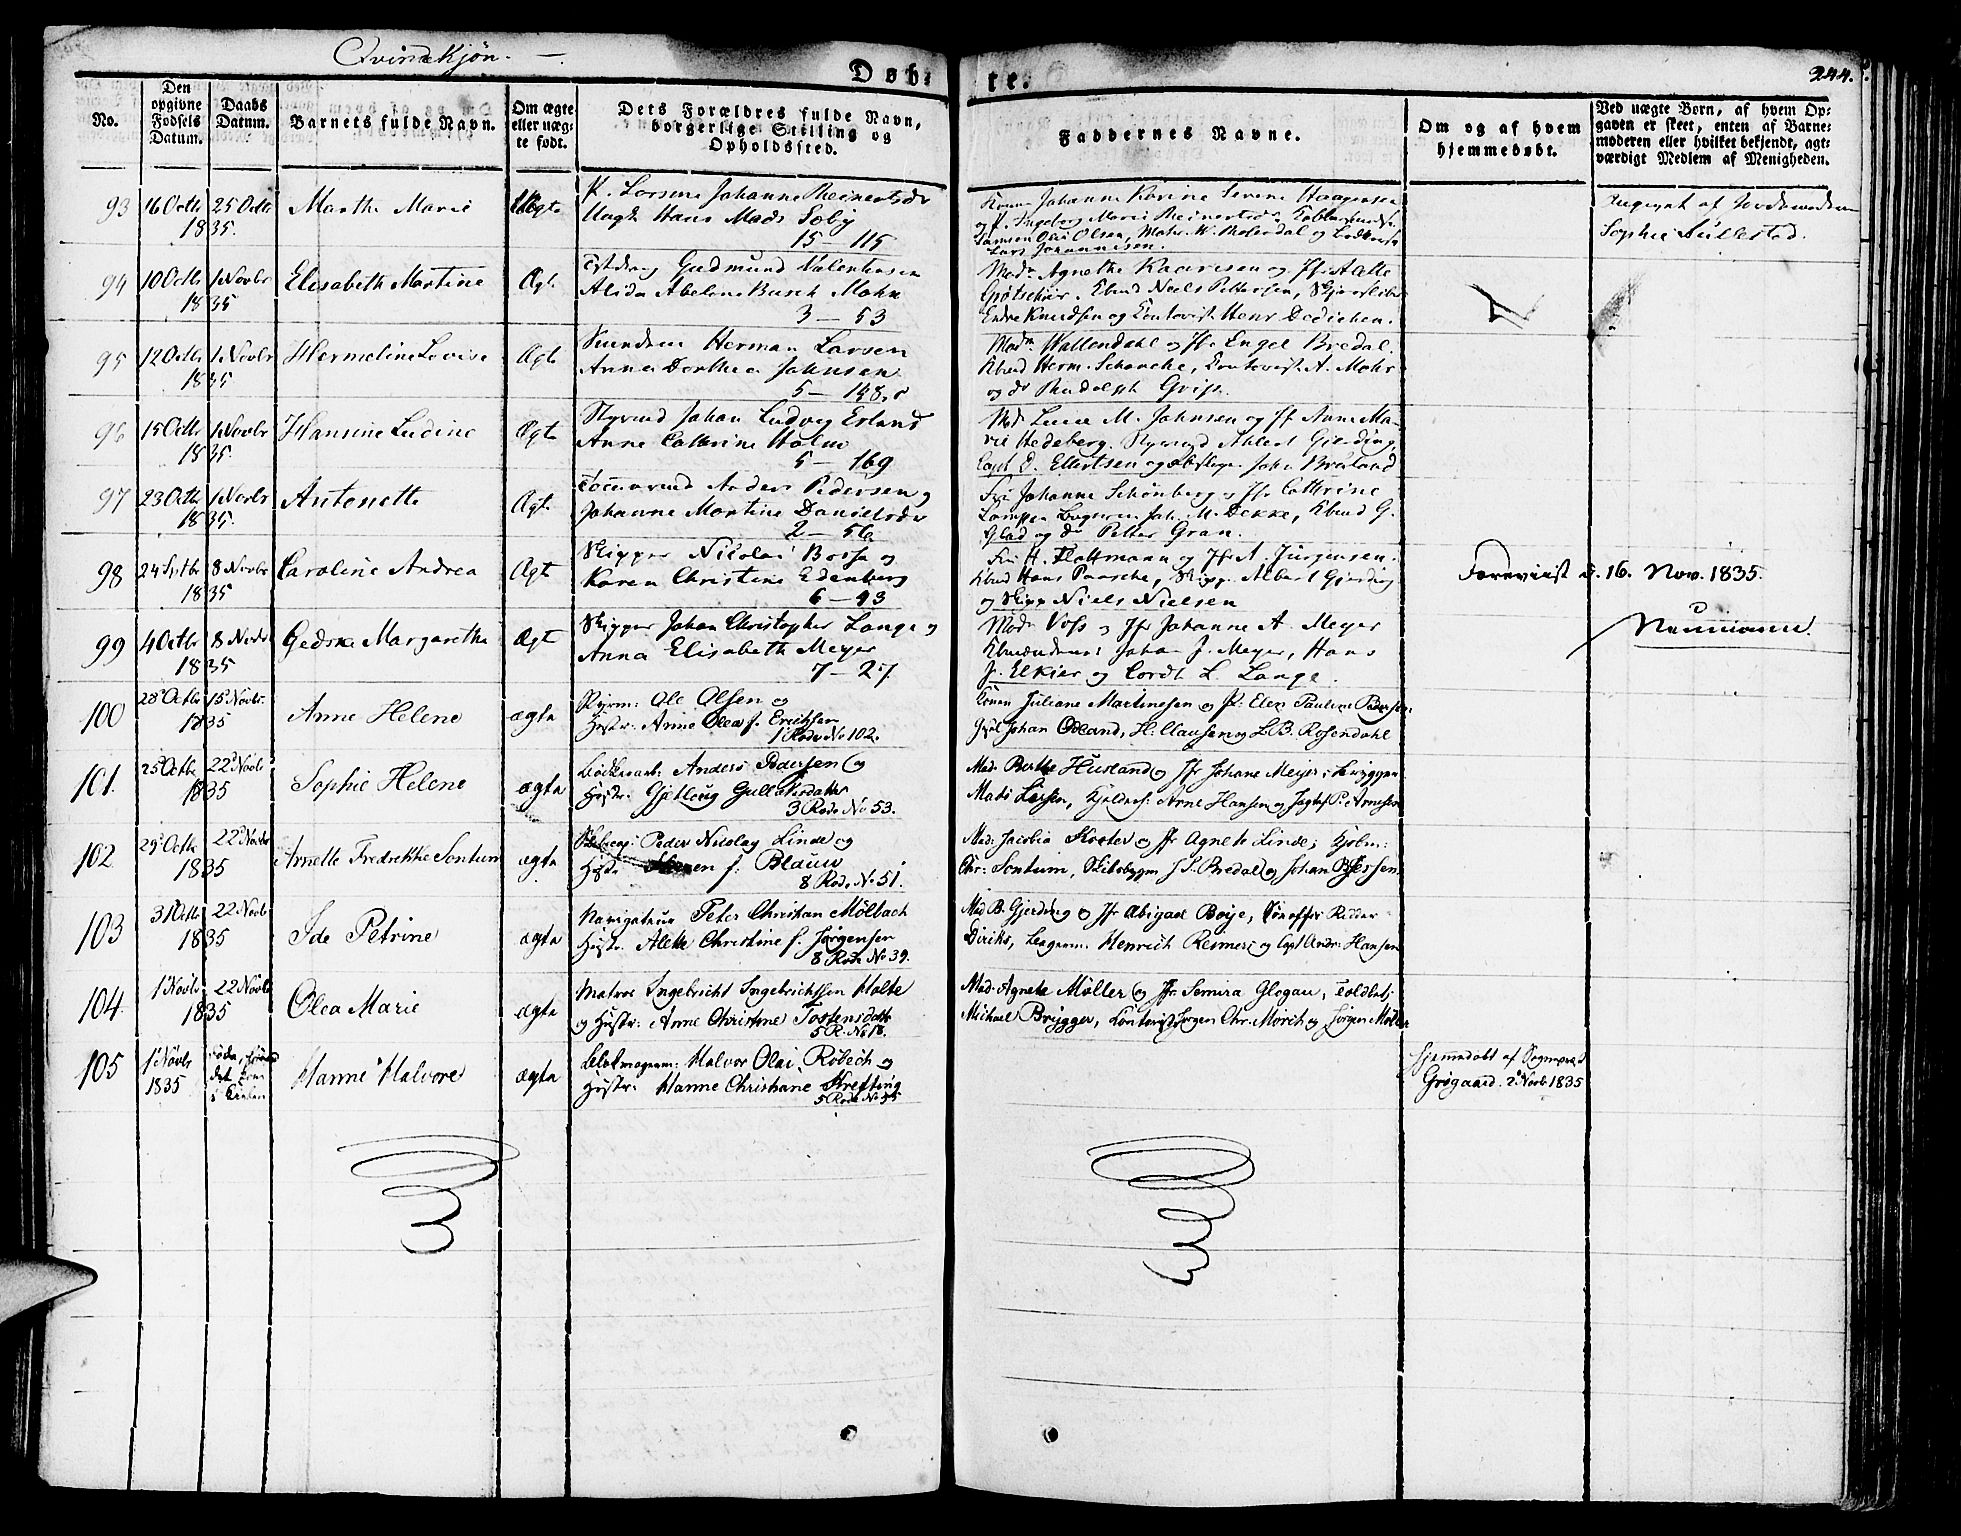 Qvindekjøn. —
Døb-
te.
244.
No.
Den opgivne Fødsels Datum.
Daabs Datum.
Barnets fulde Navn.
Om ægte eller uægte født.
Dets Forældres fulde Navn, borgerlige Stilling og Opholdssted.
Faddernes Navne.
Om og af hvem hjemmedøbt.
Ved uægte Børn, af hvem Opgaven er skeet, enten af Barnemoderen eller hvilket bekjendt, agtværdigt Medlem af Menigheden.
93 16 Octbr 25 Octb 1835. Marthe Marie Uægte
P. Larsen Johanne Reinertsdr
Ungk. Hans Mads Søby
15 — 115
Kone Johanne Karine Serene Haagensen
og P. Ingeborg Marie Reinertsdr
Olai Olsen,
Lars Johannesen.
Angivet af Jordemoder
Sophie Sullestad.
94 10 Octbr 1 Novbr 1835 Elisabeth Martine Ægte
Gudmund Valentinsen
Alida Abelone Busch Mohn
3 — 53
Madm Agnethe Kaaresen og Jfr Aalte
Grøtscher. Kbmd Niels Pettersen,
Endre Knudsen og Contorist Henr Dedichen.
95 12 Octbr 1 Novbr 1835 Hermeline Lovise Ægte
Herman Larsen
Anna Dorthea Johnsen
5 — 148
Madm Wallendahl og Jfr Engel Bredal.
Kbmd Herm. Schancke, Contorist A. Mohr
og do Rudolph Grip.
96 15 Octbr 1 Novbr 1835. Hansine Ludine Ægte
Styrmd Johan Ludvig Erland
Anne Cathrine Holm
5 — 169
Md Lucie M. Johnsen og Jfr Anne Ma-
rie Hedeberg. Styrmd Ahlert Gjerding,
Capt D. Ellertsen og John Braland
97 23 Octbr 1 Novbr 1835. Antonette Ægte
Anders Pedersen og
Johanne Martine Danielsdr
2 — 56
Fru Johanne Schönberg og Jfr Cathrine
Joh. M. Dekke, Kbmd G.
Glad og do Petter Gran.
98 24 Septbr 8 Novbr 1835 Caroline Andrea Ægte
Skipper Nicolai Bosse og
Karen Christine Edenberg
6 — 43
Fru H. Plattmann og Jfr A. Jürgensen.
Kbmd Hans Paasche, Skipp. Albert Gjerding
og Skipp Niels Nielsen
Foreviist d. 16. Nov. 1835.
Neumann.
99 4 Octbr 8 Novbr 1835 Gedske Margaretha Ægte
Skipper Johan Christopher Lange og
Anna Elisabeth Meyer
7 — 27
Madm Voss og Jfr Johanne A. Meyer
Kbmændene Johan J. Meyer, Hans
J. Elkier og Cordt L. Lange.
100 28 Octbr 15 Novbr. 1835 Anne Helene ægte
Styrm: Ole Olsen og
Hustr: Anne Olea f. Erichsen
1 Rode No 102.
Konen Juliane Martinesen og P: Elen Pauline Pedersen
Johan Odland, H. Clausen og L. B. Rosendahl
101. 25 Octbr 22 Novbr 1835 Sophie Helene ægte
Bødkersv: Anders Pedersen og
Hustr: Gjertloug Gullaksdatter
3 Rode No 53.
Mad. Berthe Husland og Jfr Johane Meyer;
Mads Larsen, Arne Hansen og P: Arnesen
102 29 Octbr 22 Novbr 1835 Arnette Fredrikke Sontum ægte
Peder Nicolay Linde og
Hustr. f. Blauw
8 Rode No 51.
Mad: Jacobia Koster og Jfr Agnete Linde; Kjøbm:
Chr: Sontum, Skibsbygm J. S. Bredal og Johan B. Jersen.
103 31 Octbr 22 Novbr 1835 Ide Petrine ægte
Navigateur Peter Christian Mölbach
Hustr. Alette Christine f. Jørgensen
8 Rode No 39.
Mad B. Gjerding og Jfr Abigael Boye,
Diriks, Henrich Reimers og Capt Andr: Hansen
104. 1 Novbr 22 Novbr 1835 Olea Marie ægte
Matros Ingebricht Ingebrichtsen Holte
og Hustr: Anne Christine Tostensdatter
5 R. No 18.
Mad. Agneta Møller og Jfr Semira Glogau, Toldbetj.
Michael Brygger, Contorist Jørgen Chr. Morch og Jørgen Møller
105 1 Novbr 1835 Hanne Halvore ægte
Døde, førend
det kom
i Kirken
Halvor Olai Röbech og
Hustr: Hanne Christiane Krefting
5 Rode No 55
Hjemmedøbt af Sognepræst
Grøgaard. 2 Novb. 1835